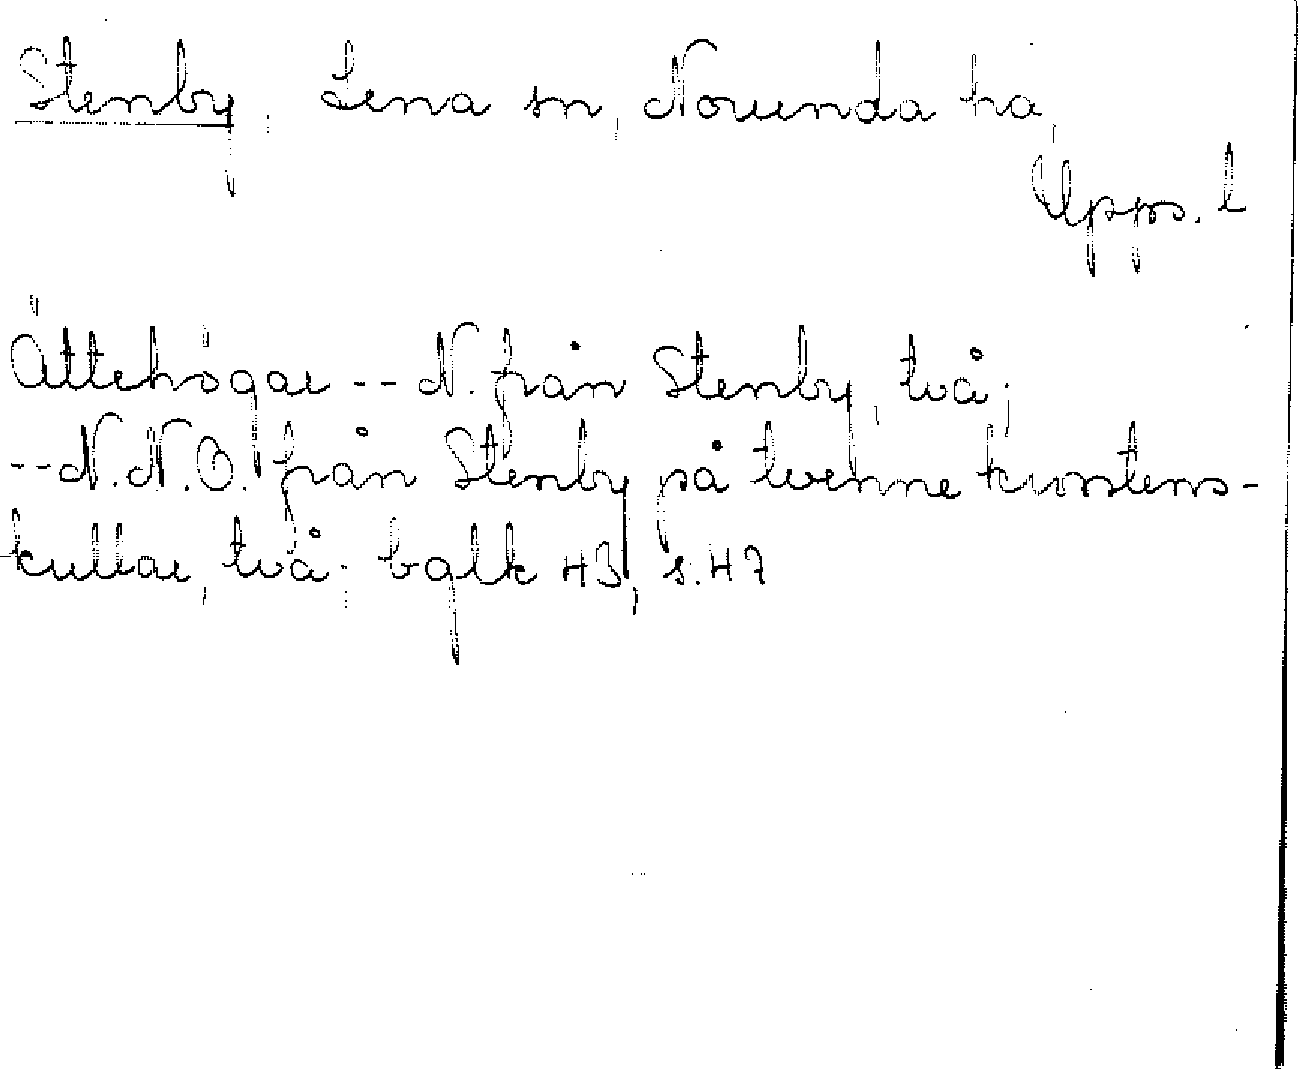 Stenby, Lena sn, Norunda hd,
Upps. l
Ättehögar -- N. från Stenby, två;
-- N.N.O. från Stenby på tvenne
kullar, två; bqlk 43, s. 47